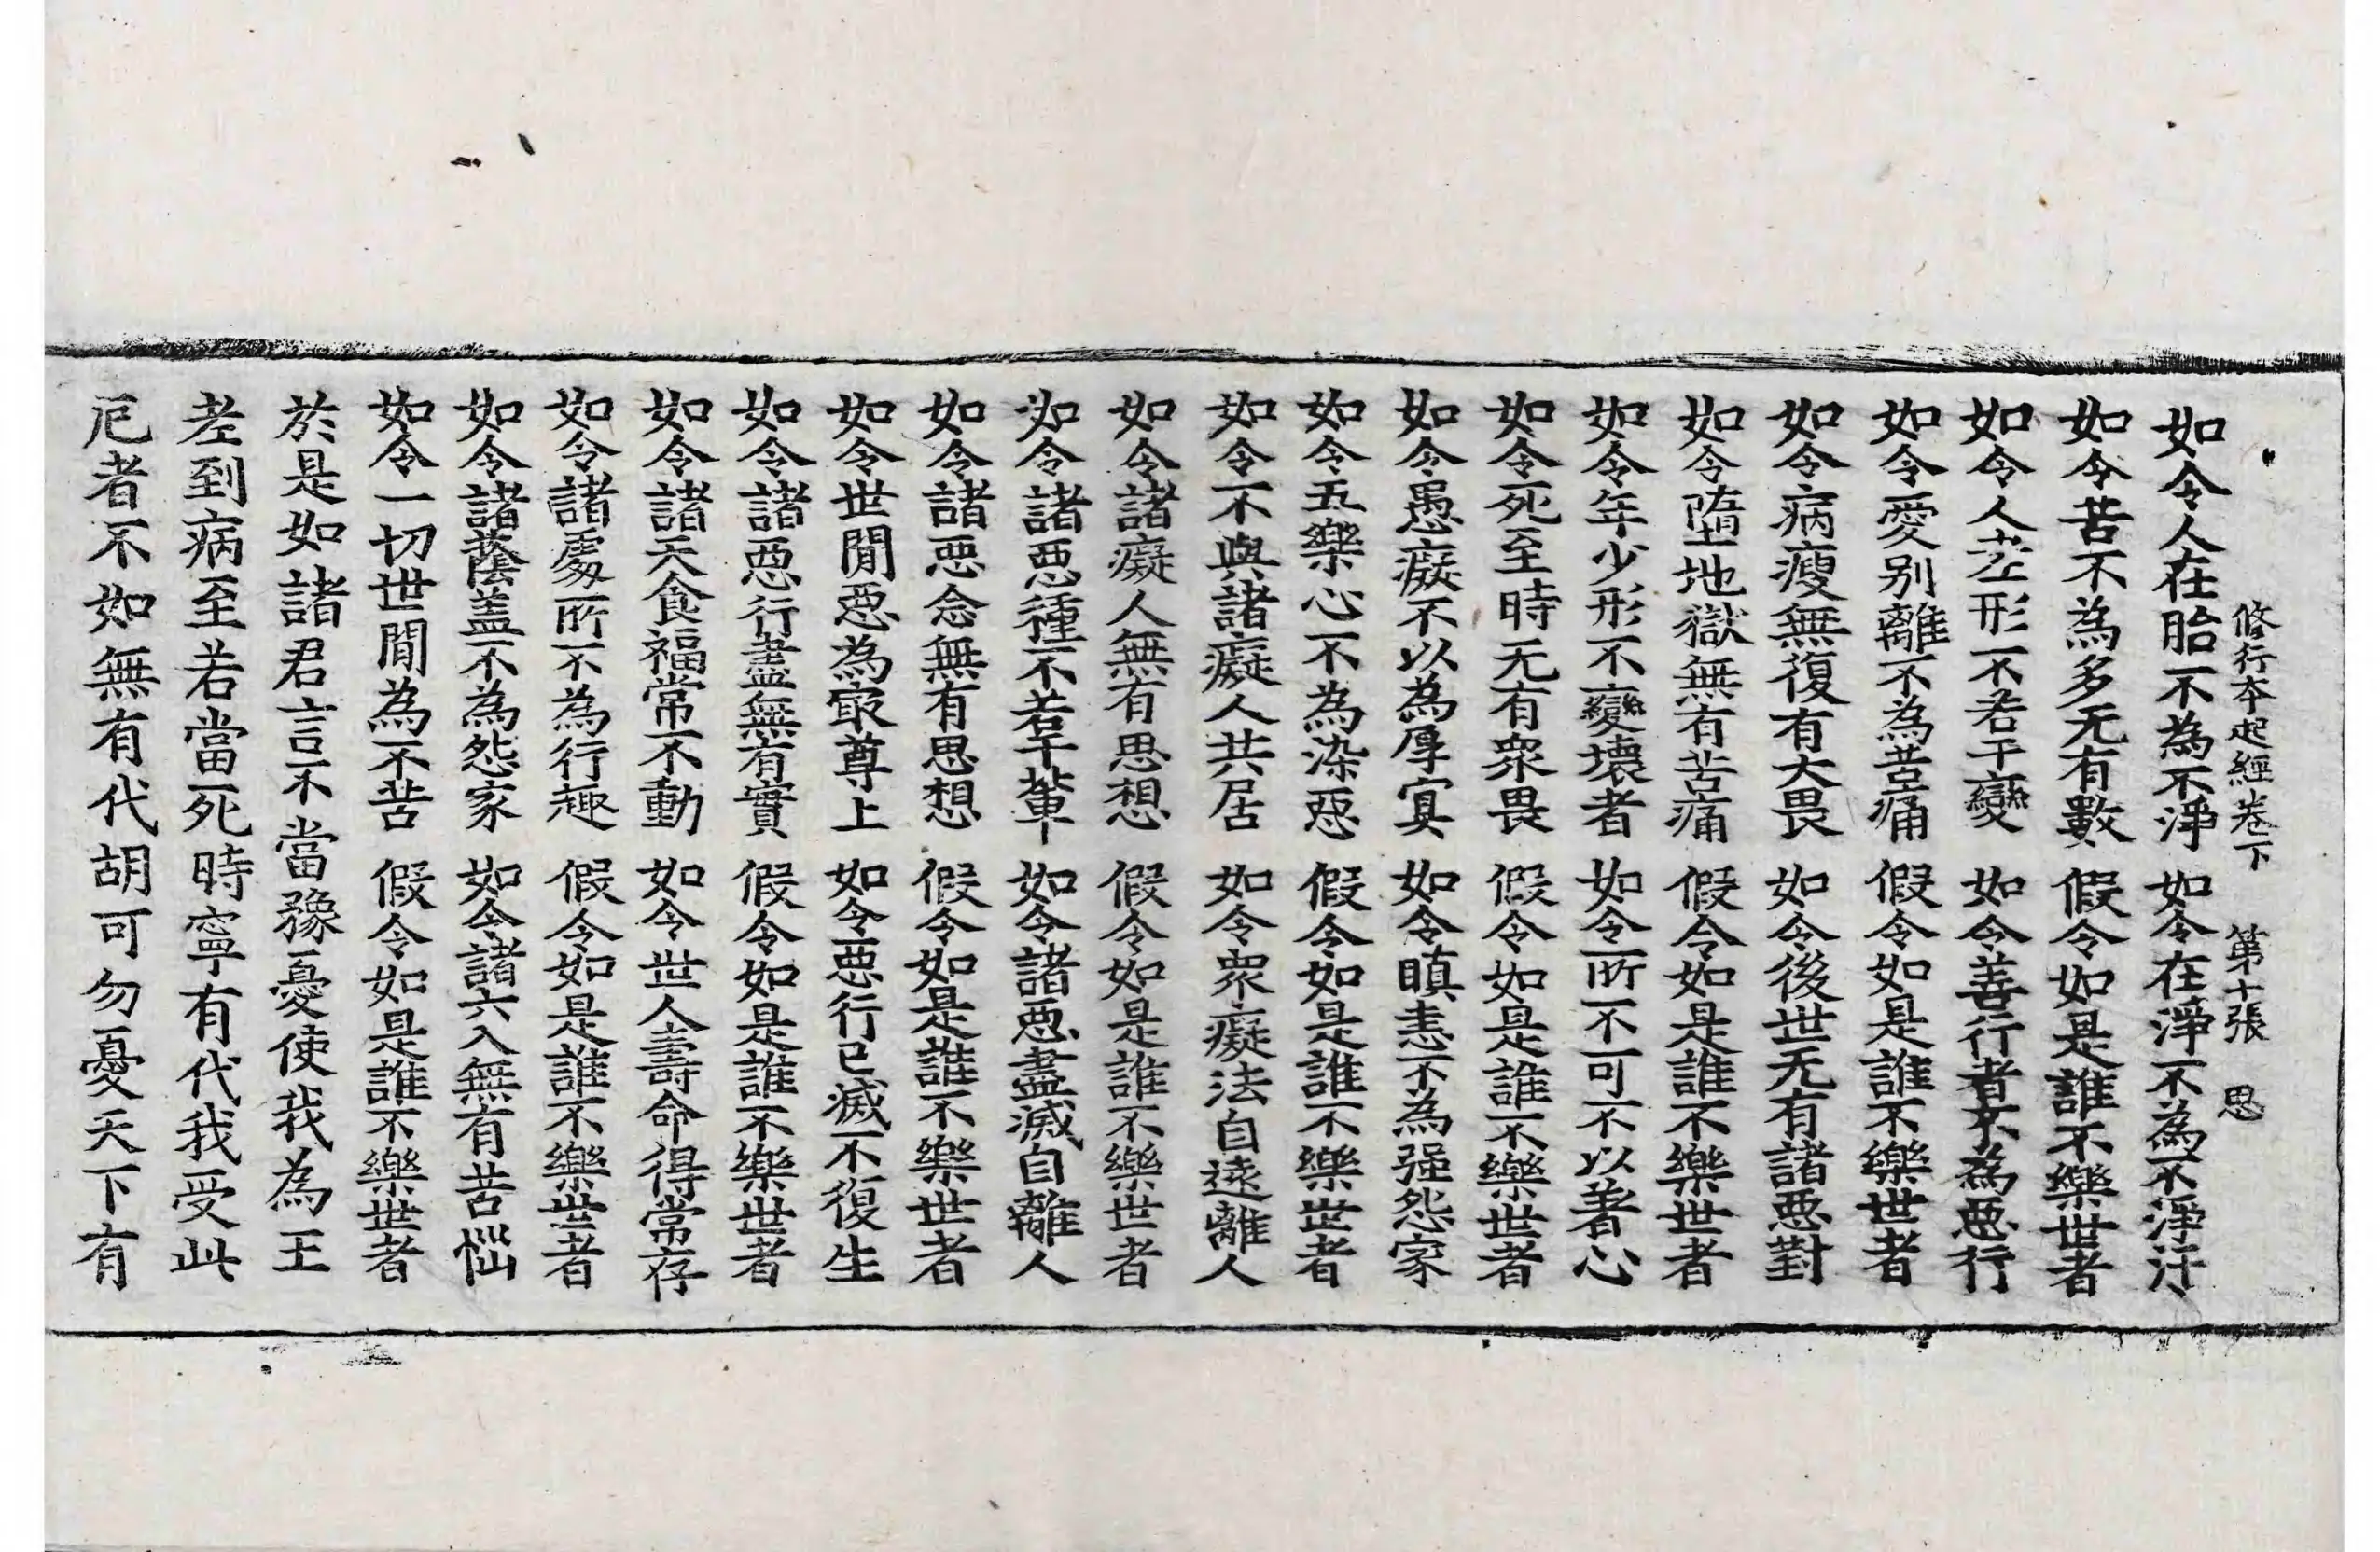 修行本起經卷下　第十張　思
如令人在胎不為不淨　如令在淨不為不淨汙
如令苦不為多无有數　假令如是誰不樂世者
如令人老形不若干變　如令善行者不為惡行
如令愛別離不為苦痛　假令如是誰不樂世者
如令病瘦無復有大畏　如令後世无有諸惡對
如令墮地獄無有苦痛　假令如是誰不樂世者
如令年少形不變壞者　如令所不可不以著心
如令死至時无有衆畏　假令如是誰不樂世者
如令愚癡不以為厚寘　如令瞋恚不為强怨家
如令五樂心不為染惡　假令如是誰不樂世者
如令不與諸癡人共居　如令衆癡法自遠離人
如令諸癡人無有思想　假令如是誰不樂世者
如令諸惡種不若干輩　如令諸惡盡滅自離人
如令諸惡念無有思想　假令如是誰不樂世者
如令世閒惡為㝡尊上　如令惡行已滅不復生
如令諸惡行盡無有實　假令如是誰不樂世者
如令諸天食福常不動　如令世人壽命得常存
如令諸處所不為行趣　假令如是誰不樂世者
如令諸蔭盖不為怨家　如令諸六入無有苦惱
如令一切世閒為不苦　假令如是誰不樂世者
於是如諸君言不當豫憂使我為王
老到病至若當死時寧有代我受此
厄者不如無有代胡可勿憂天下有